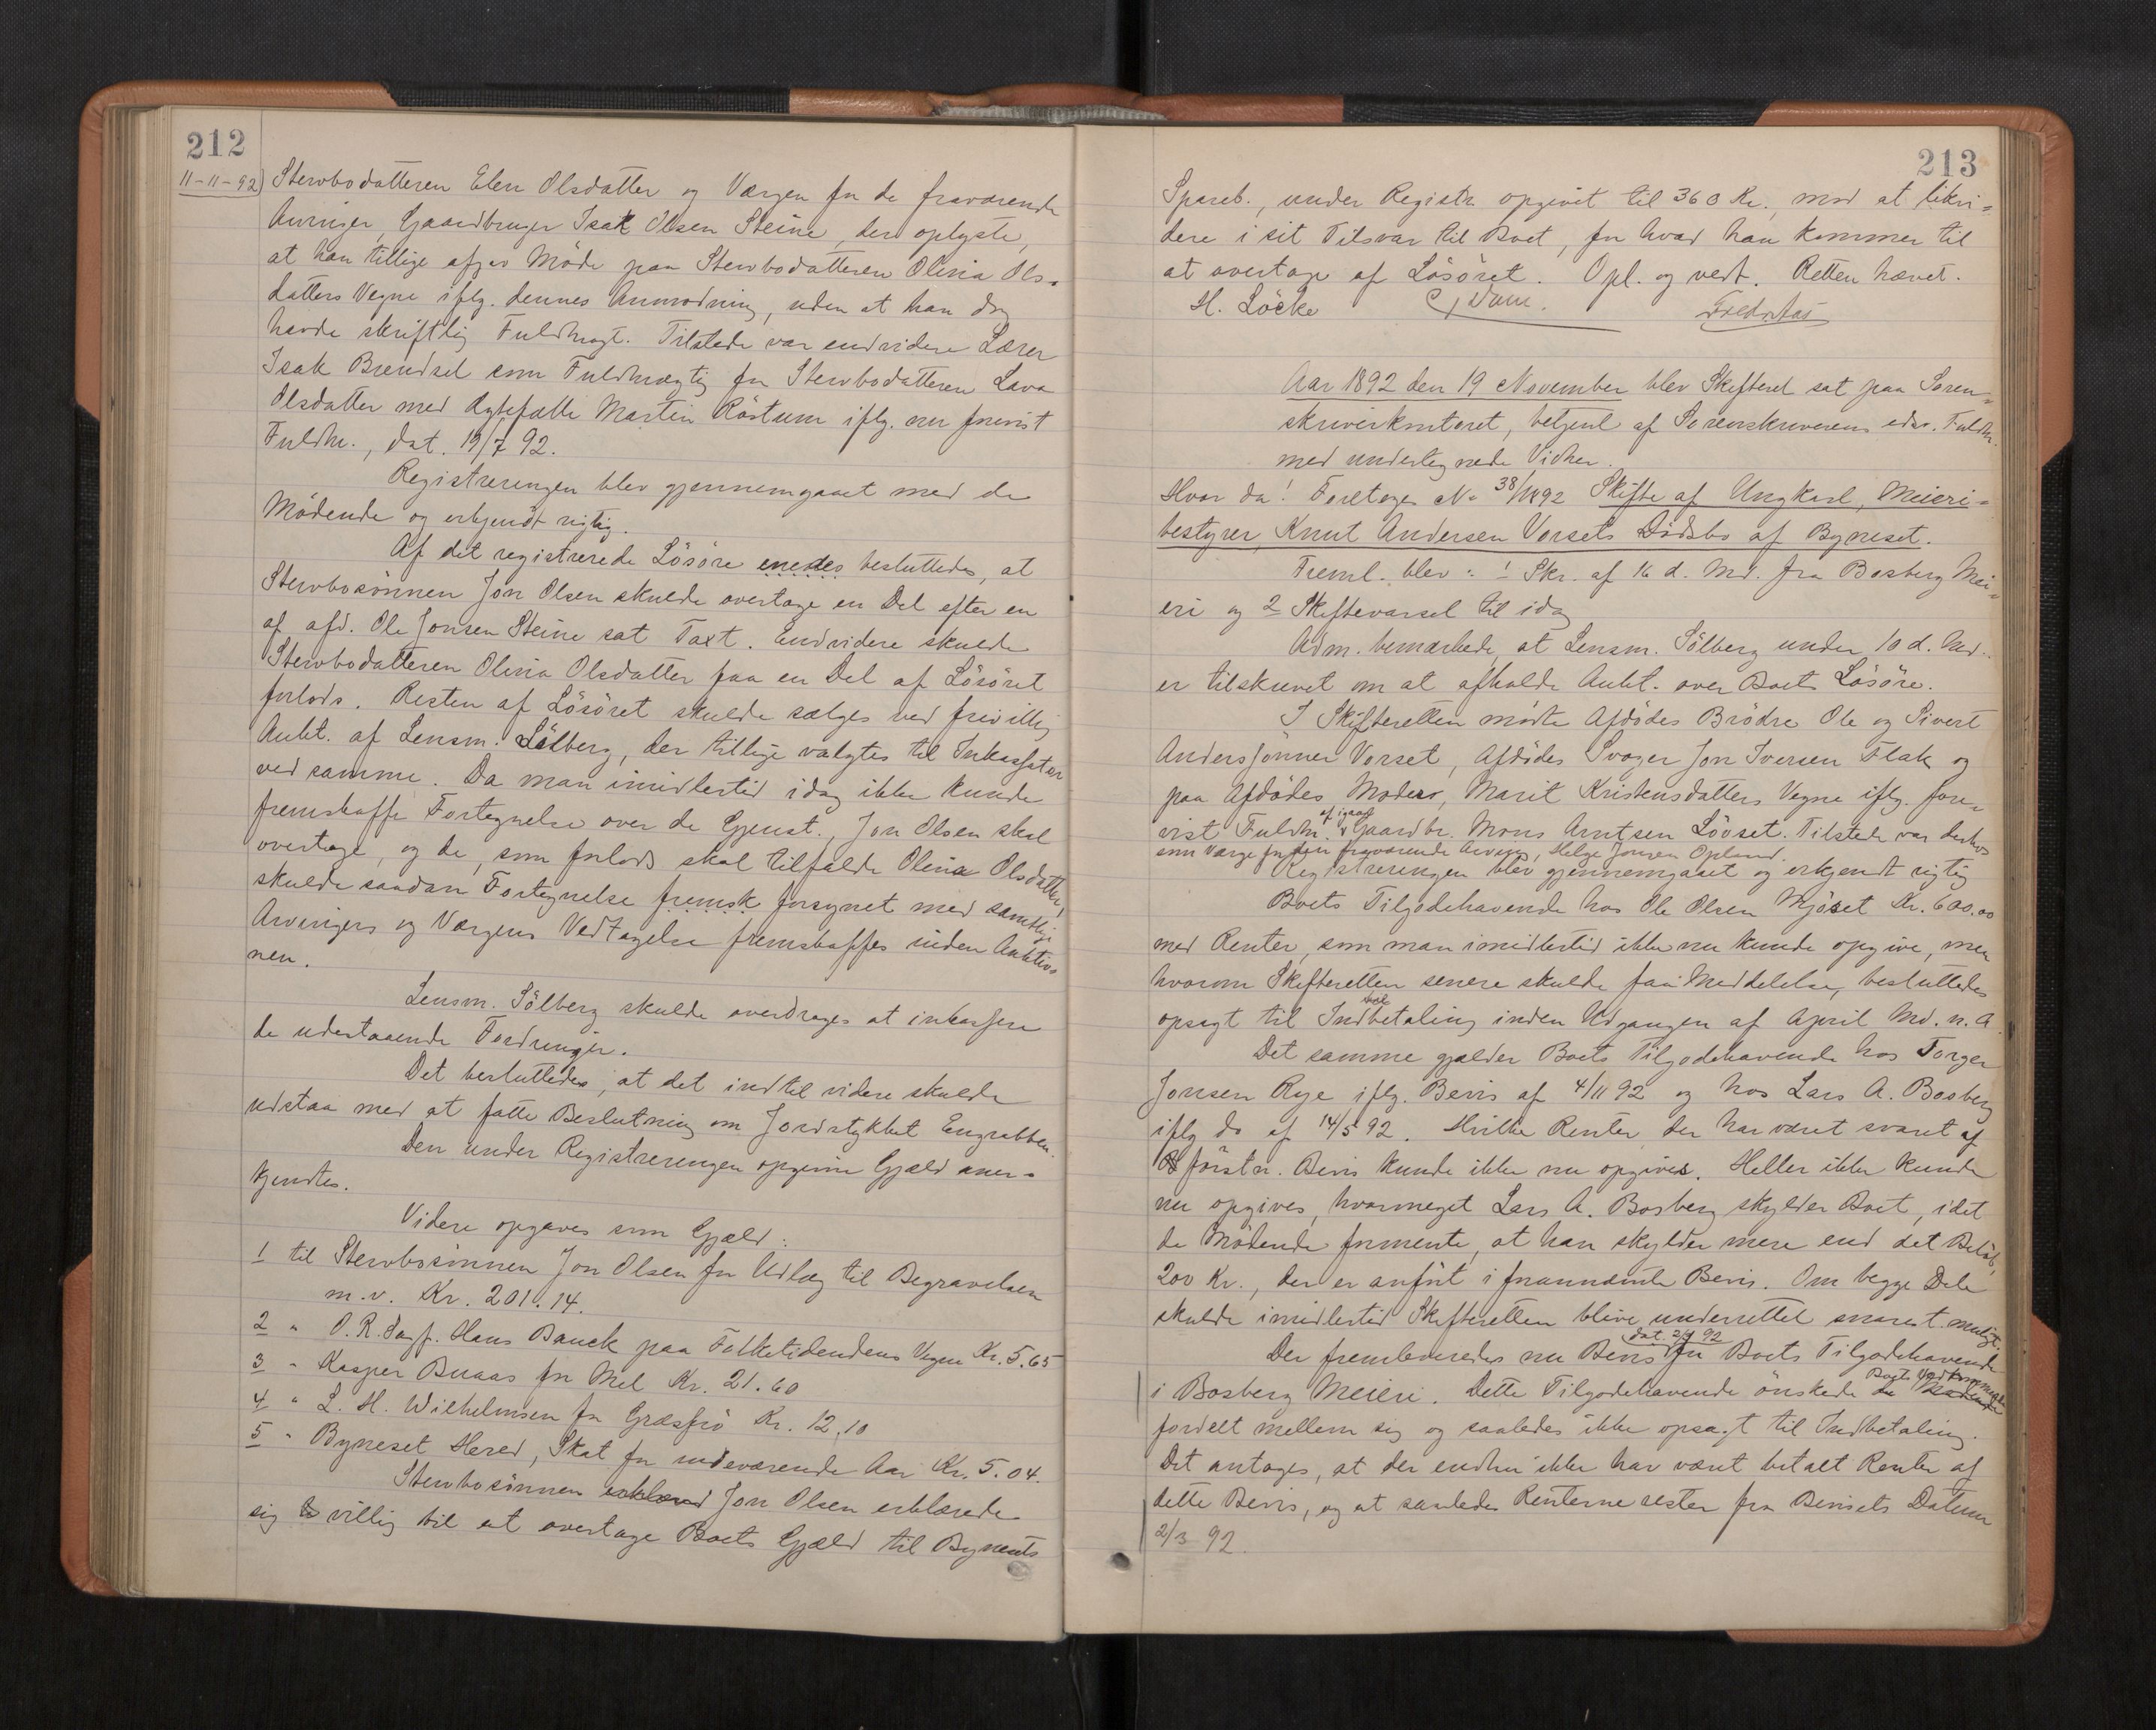 212
11-11-92
Stervbodatteren Elen Olsdatter og Værgen for de fraværende
Arvinger, Gaardbruger Isak Olsen Steine, der oplyste,
at han tillige afgav Møde paa Stervbodatteren Olina Ols-
datters Vegne iflg. dennes Anmodning, uden at han dog
havde skriftlig Fuldmagt. Tilstede var endvidere Lærer
Isak Brendsel som Fuldmægtig for Stervbodatteren Lava
Olsdatter med Ægtefælle Martin Röstum iflg. nu forevist
Fuldm., dat. 19/7 92.
Registreringen blev gjennemgaaet med de
Mödende og erkjendt rigtig.
Af det registrerede Lösöre enedes besluttedes, at
Stervbosönnen Jon Olsen skulde overtage en Del efter en
af afd. Ole Jonsen Steine sat Taxt. Endvidere skulde
Stervbodatteren Olina Olsdatter faa en Del af Lösöret
forlods. Resten af Lösöret skulde sælges ved frivillig
Aukt. af Lensm. Sölberg, der tillige valgtes til Inkassator
ved samme. Da man imidlertid idag ikke kunde
fremskaffe Fortegnelse over de Gjenst., Jon Olsen skal
overtage, og de, som forlods skal tilfalde Olina Olsdatter,
skulde saadan Fortegnelse fremsk forsynet med samtlige
Arvingers og Værgens Vedtagelse fremskaffes inden Auktio-
nen.
Lensm. Sölberg skulde overdrages at inkassere
de udestaaende Fordringer.
Det besluttedes, at det indtil videre skulde
udstaa med at fatte Beslutning om Jordstykket Engrabben.
Den under Registreringen opgivne Gjæld aner-
kjendtes.
Videre opgaves som Gjæld:
1 til Stervbosönnen Jon Olsen for Udlæg til Begravelsen
m.v. Kr. 201.14.
2 " O.R. Sagf. Hans Bauck paa Folketidendens Vegne Kr. 5.65
3 " Kasper Buaas for Mel Kr. 21.60
4 " L. H. Wilhelmsen for Græsfrö Kr. 12.10
5 " Byneset Hered, Skat for indeværende Aar Kr. 5.04.
Stervbosönnen erklæred Jon Olsen erklærede
sig villig til at overtage Boets Gjæld til Bynesets
213
Spareb., under Registr. opgivet til 360 Kr., mod at likvi-
dere i sit Tilsvar til Boet, for hvad han kommer til
at overtage af Lösöret. Opl. og vedt. Retten hævet.
H. Löcke
Aar 1892 den 19 November blev Skifteret sat paa Soren-
skriverkontoret, betjent af Sorenskriverens edsv. Fuldm.
med undertegnede Vidner.
Hvor da! Foretoges No 38/1892 Skifte af Ungkarl, Meieri-
bestyrer, Knut Andersen Vorsets Dödsbo af Byneset.
Freml. blev: 1 Skr. af 16 d. Md. fra Bosberg Mei-
eri og 2 Skiftevarsel til idag
Adm. bemærkede, at Lensm. Sölberg under 10 d. Md.
er tilskrevet om at afholde Aukt. over Boets Lösöre.
I Skifteretten mödte Afdödes Brödre Ole og Sivert
Anderssönner Vorset, Afdödes Svoger Jon Iversen Flak og
paa Afdödes Moders, Marit Kristensdatters Vegne iflg. fore-
vist Fuldm. af igaar Gaardbr. Mons Arntsen Lövset. Tilstede var derhos
som Værge for den fraværende Arving, Helge Jonsen Opland.
Registreringen blev gjennemgaaet og erkjendt rigtig
Boets Tilgodehavende hos Ole Olsen Mjöset Kr. 600.00
med Renter, som man imidlertid ikke nu kunde opgive, men
hvorom Skifteretten senere skulde faa Meddelelse, besluttedes
opsagt til Indbetaling inden Udgangen af April Md. n. A.
Det samme gjælder Boets Tilgodehavende hos Torger
Jonsen Rye iflg. Bevis af 4/11 92 og hos Lars A. Bosberg
iflg do af 14/5 92. Hvilke Renter der har været svaret af
förstn. Bevis kunde ikke nu opgives. Heller ikke kunde
nu opgives, hvormeget Lars A. Bosberg skylder Boet, idet
de Mödende formente, at han skylder mere end det Belöb,
200 Kr., der er anfört i frannævnte Bevis. Om begge Dele
skulde imidlertid Skifteretten blive underrettet snarest muligt.
Der fremleveredes nu Bevis dat. 2/3 92 for Boets Tilgodehavende
i Bosberg Meieri. Dette Tilgodehavende önskede de Mödende Boets Vedkommende
fordelt mellem sig og saaledes ikke opsagt til Indbetaling.
Det antoges, at der endnu ikke har været betalt Renter af
dette Bevis, og at saaledes Renterne rester fra Bevisets Datum
2/3 92.